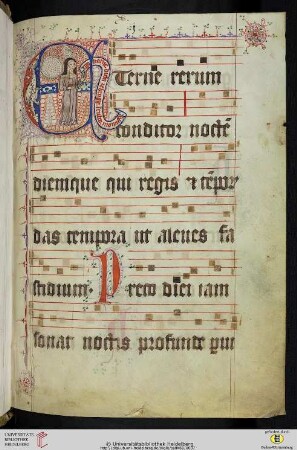 Eterne rerum
conditor noctē
diemque qui regis ⁊ tēpor
das tempora ut aleues fa
stidium. Preco diei iam
sonat noctis profunde pui
UNIVERSITÄTS-
BIBLIOTHEK
HEIDELBERG
© Universitätsbibliothek Heidelberg